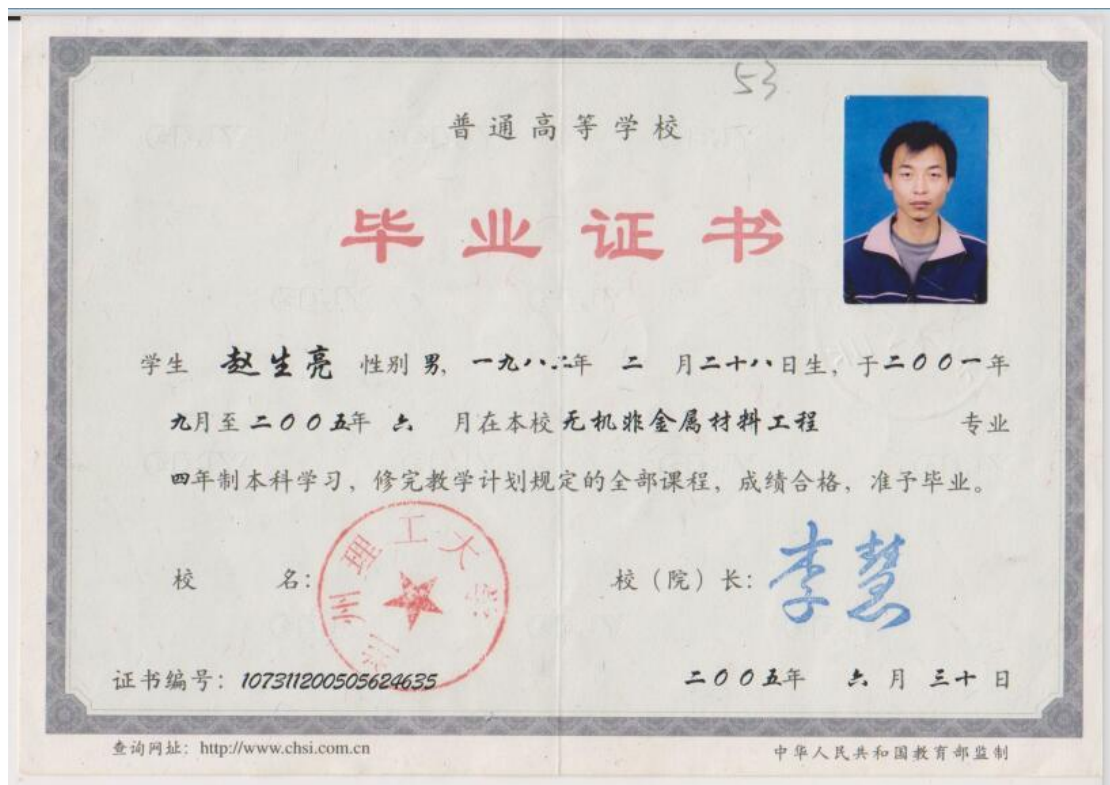 53
普通高等学校
毕业证书
学生 赵生亮 性别 男, 一九八二年 二 月二十八日生, 于二00一年
九月至二00五年 六 月在本校无机非金属材料工程 专业
四年制本科学习, 修完教学计划规定的全部课程, 成绩合格, 准予毕业。
校 名: 兰州理工大学
校（院）长: 李慧
证书编号: 107311200505624635
二00五年 六 月 三十 日
查询网址: http://www.chsi.com.cn
中华人民共和国教育部监制